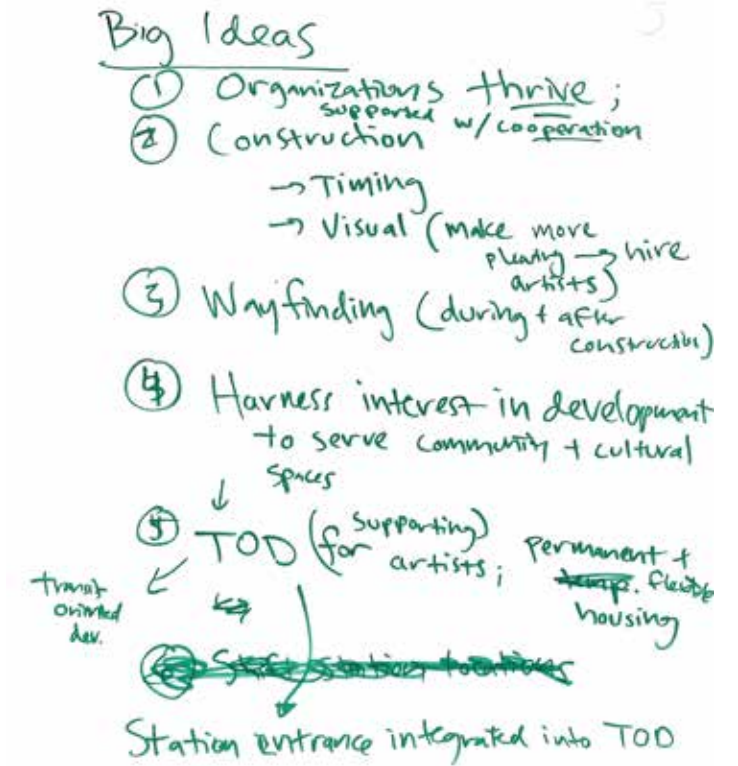 Big Ideas
① Organizations thrive;
supported w/ cooperation
② Construction
→ Timing
→ Visual (make more
pleasing → hire
artists)
③ Wayfinding (during + after
construction)
④ Harness interest in development
to serve community + cultural
spaces
↓
⑤ TOD (for supporting)
artists; permanent +
temp. flexible
housing
transit
oriented
dev.
⑥ station locations
Station entrance integrated into TOD